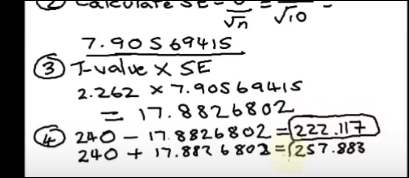 ② Calculate SE = σ/√n = /√10 =
7.9056941S
③ T-value × SE
2.262 × 7.9056941S
= 17.8826802
④ 240 − 17.8826802 = 222.117
240 + 17.8826802 = 257.883